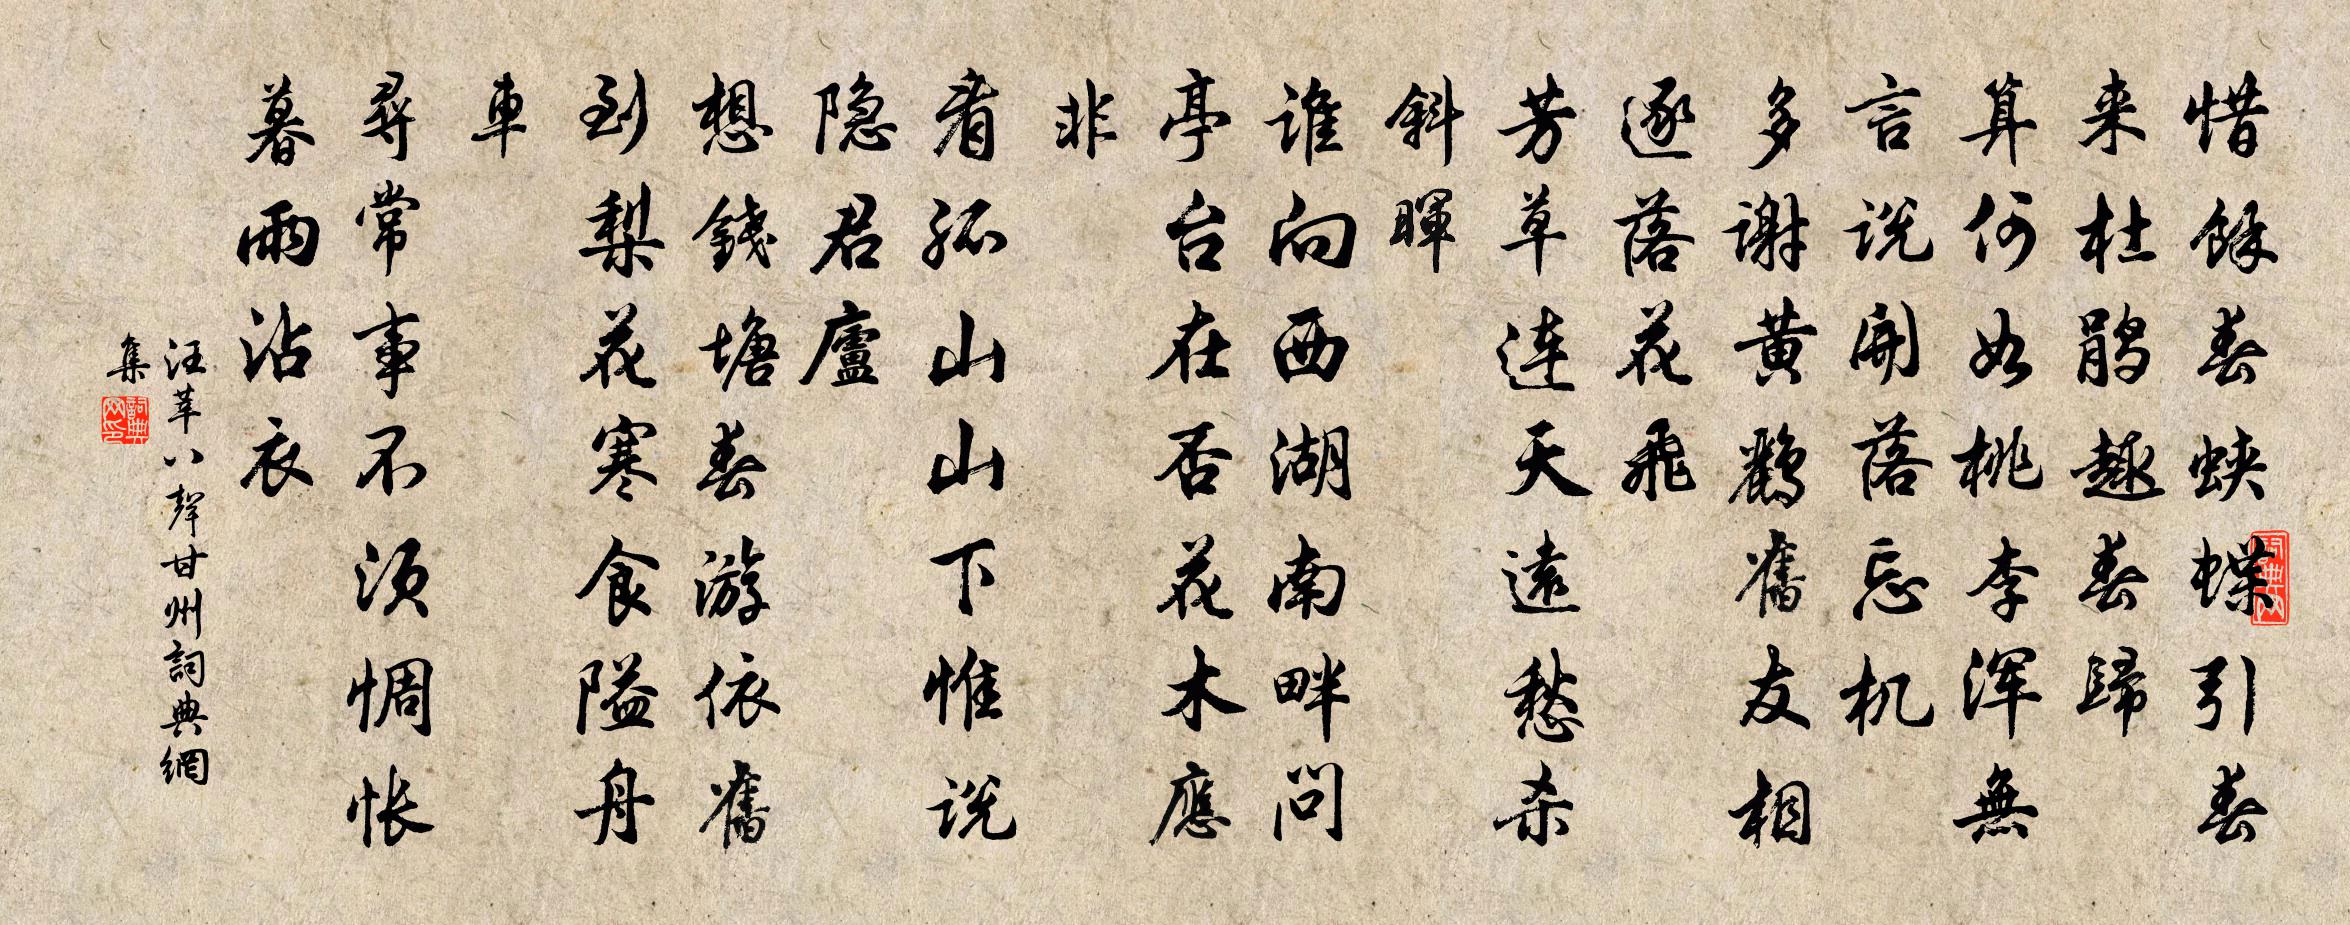 惜餘春蛺蝶引春
来杜鹃趣春歸
算何如桃李浑無
言说開落忘机
多謝黄鹂舊友相
逐落花飛
芳草连天遠愁杀
斜暉
谁向西湖南畔問
亭台在否花木應
非
看孤山山下惟说
隐君廬
想錢塘春游依舊
到梨花寒食隘舟
車
尋常事不须惆怅
暮雨沾衣
汪莘八聲甘州詞典網
集